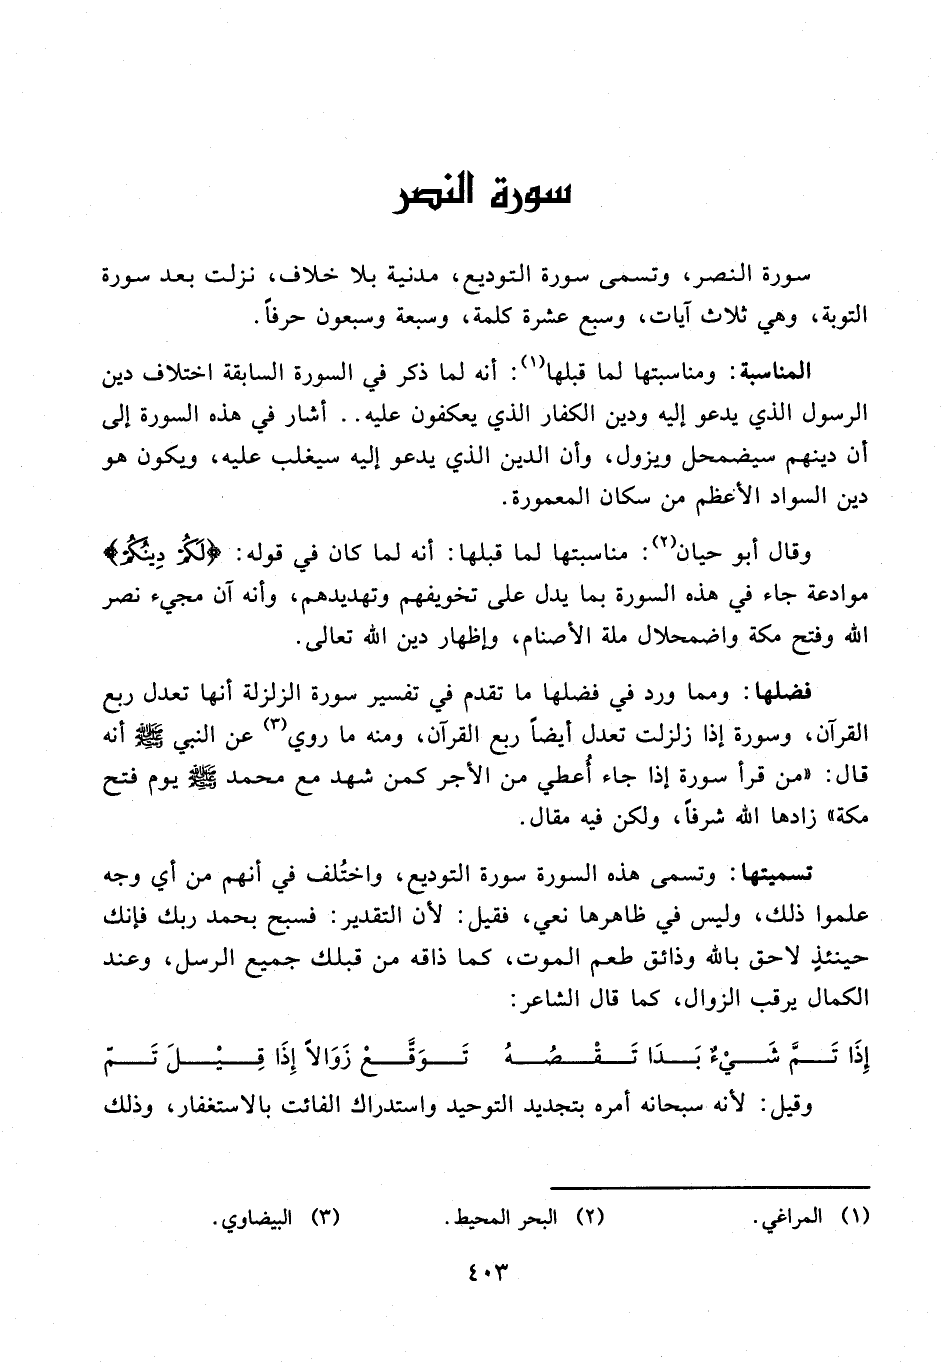 سورة النصر
سورة النصر، وتسمى سورة التوديع، مدنية بلا خلاف، نزلت بعد سورة
التوبة، وهي ثلاث آيات، وسبع عشرة كلمة، وسبعة وسبعون حرفاً.
المناسبة: ومناسبتها لما قبلها(١): أنه لما ذكر في السورة السابقة اختلاف دين
الرسول الذي يدعو إليه ودين الكفار الذي يعكفون عليه.. أشار في هذه السورة إلى
أن دينهم سيضمحل ويزول، وأن الدين الذي يدعو إليه سيغلب عليه، ويكون هو
دين السواد الأعظم من سكان المعمورة.
وقال أبو حيان(٢): مناسبتها لما قبلها: أنه لما كان في قوله: ﴿لَكُمْ دِينُكُمْ﴾
موادعة جاء في هذه السورة بما يدل على تخويفهم وتهديدهم، وأنه آن مجيء نصر
الله وفتح مكة واضمحلال ملة الأصنام، وإظهار دين الله تعالى.
فضلها: ومما ورد في فضلها ما تقدم في تفسير سورة الزلزلة أنها تعدل ربع
القرآن، وسورة إذا زلزلت تعدل أيضاً ربع القرآن، ومنه ما روي(٣) عن النبي ﷺ أنه
قال: «من قرأ سورة إذا جاء أُعطي من الأجر كمن شهد مع محمد ﷺ يوم فتح
مكة» زادها الله شرفاً، ولكن فيه مقال.
تسميتها: وتسمى هذه السورة سورة التوديع، واختُلف في أنهم من أي وجه
علموا ذلك، وليس في ظاهرها نعي، فقيل: لأن التقدير: فسبح بحمد ربك فإنك
حينئذٍ لاحق بالله وذائق طعم الموت، كما ذاقه من قبلك جميع الرسل، وعند
الكمال يرقب الزوال، كما قال الشاعر:
إِذَا تَمَّ شَيْءٌ بَدَا نَقْصُهُ تَوَقَّعْ زَوَالاً إِذَا قِيْلَ تَمّ
وقيل: لأنه سبحانه أمره بتجديد التوحيد واستدراك الفائت بالاستغفار، وذلك
(١) المراغي. (٢) البحر المحيط. (٣) البيضاوي.
٤٠٣